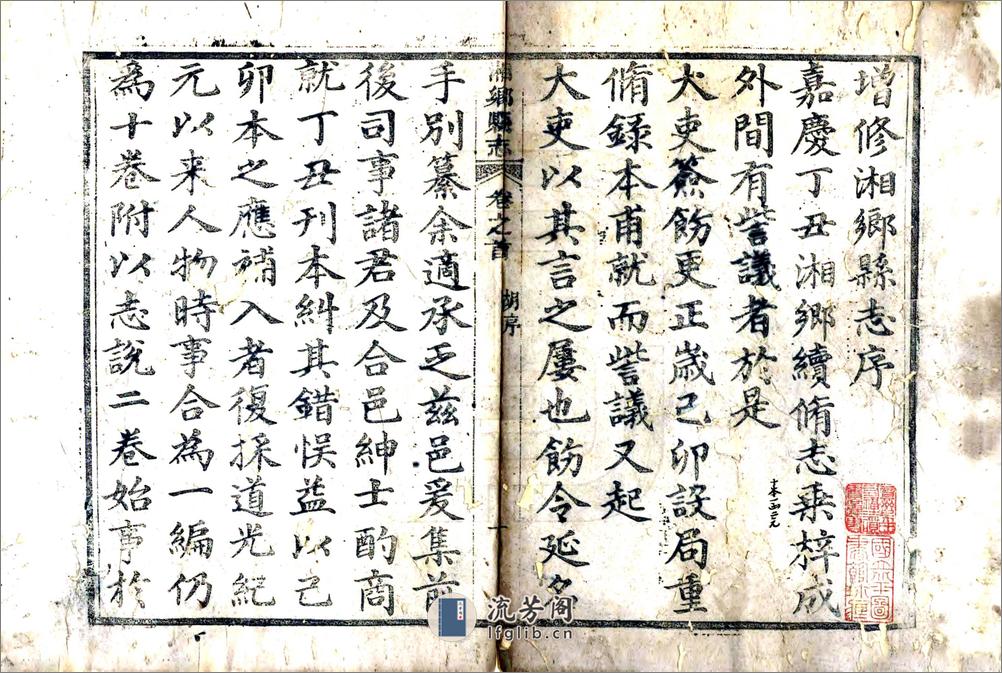 增修湘鄉縣志序
嘉慶丁丑湘鄉續脩志乘梓成
外間有訾議者於是
大吏簽飭更正嵗己卯設局重
脩錄本甫就而訾議又起
大吏以其言之屢也飭令延
鄉縣志 卷之首 胡序 一
手別纂余適承乏茲邑爰集前
後司事諸君及合邑紳士酌商
就丁丑刊本糾其錯悞益以己
卯本之應補入者復採道光紀
元以来人物時事合為一編仍
為十卷附以志說二卷始事於
流芳阁
lfglib.cn